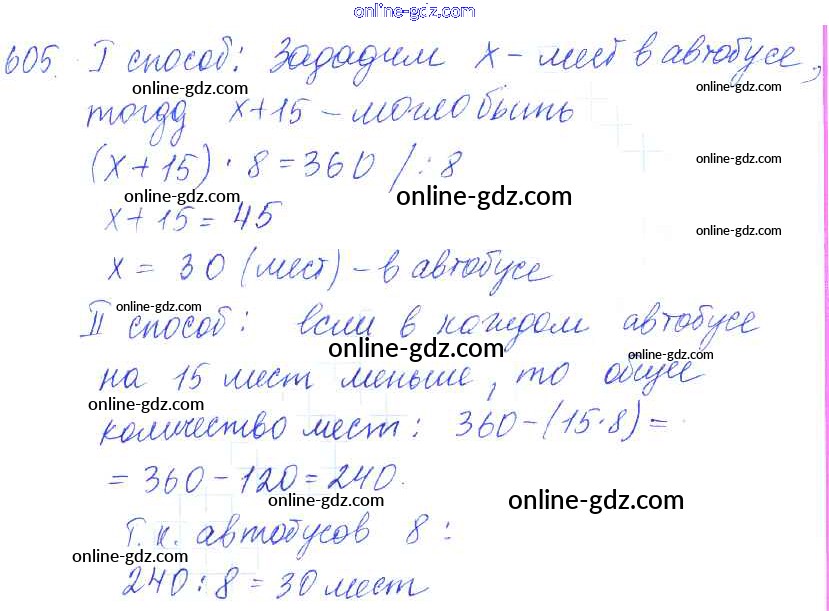 online-gdz.com
605. I способ: Зададим x – мест в автобусе,
online-gdz.com online-gdz.com
тогда x+15 – могло быть
(x+15) · 8 = 360 / : 8
online-gdz.com
online-gdz.com online-gdz.com
x+15 = 45
online-gdz.com
x = 30 (мест) – в автобусе
online-gdz.com
II способ: если в каждом автобусе
online-gdz.com online-gdz.com
на 15 мест меньше, то общее
online-gdz.com
количество мест: 360 – (15·8) =
= 360 – 120 = 240.
online-gdz.com online-gdz.com
Т.к. автобусов 8 :
online-gdz.com
240 : 8 = 30 мест
online-gdz.com